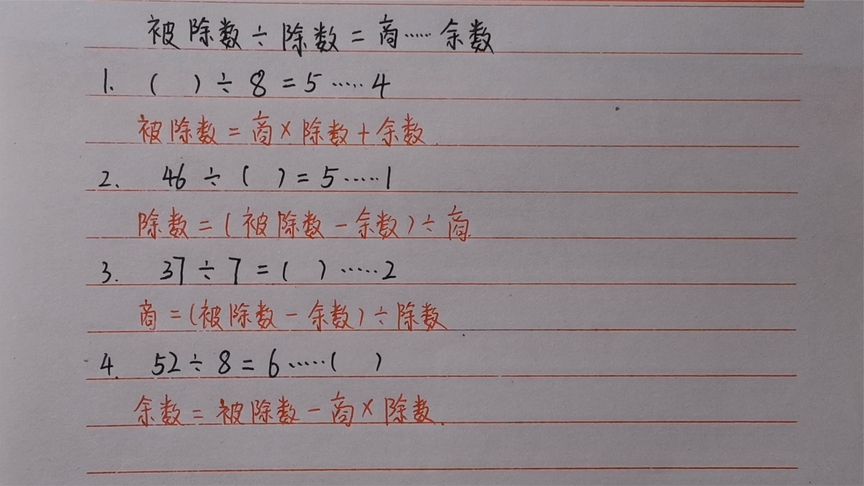 被除数÷除数=商……余数
1. ( )÷8=5……4
被除数=商×除数+余数.
2. 46÷( )=5……1
除数=(被除数-余数)÷商
3. 37÷7=( )……2
商=(被除数-余数)÷除数
4. 52÷8=6……( )
余数=被除数-商×除数.